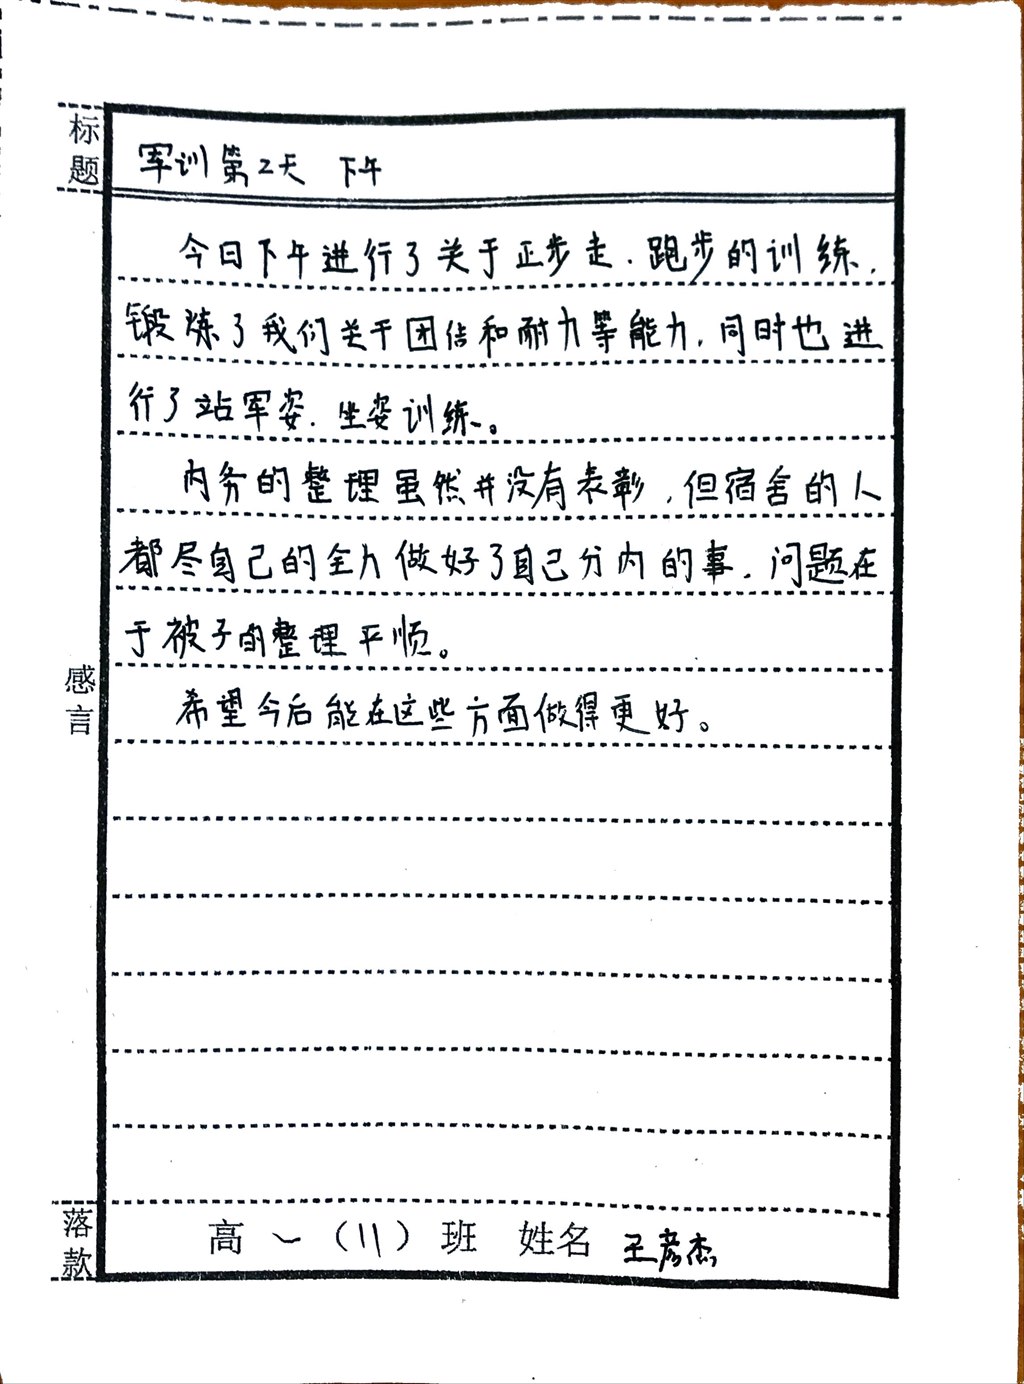 标题
军训第2天 下午
今日下午进行了关于正步走、跑步的训练，
锻炼了我们关于团结和耐力等能力，同时也进
行了站军姿、坐姿训练。
内务的整理虽然并没有表彰，但宿舍的人
都尽自己的全力做好了自己分内的事，问题在
于被子的整理平顺。
感言
希望今后能在这些方面做得更好。
落款
高一（11）班 姓名 王彦杰